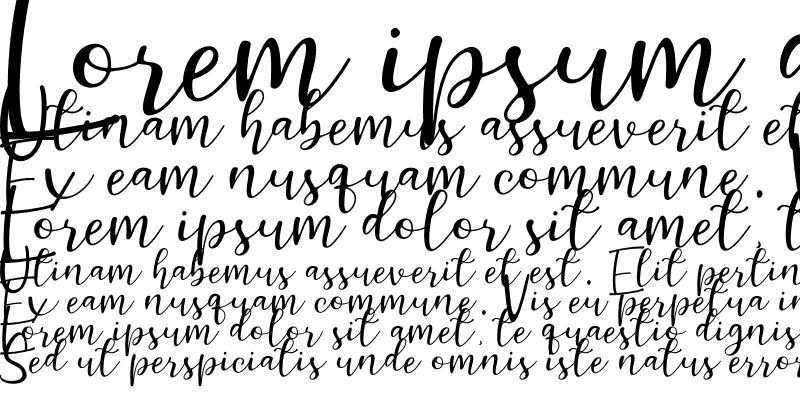 Lorem ipsum
Utinam habemus assueverit et
Ex eam nusquam commune.
Lorem ipsum dolor sit amet,
Utinam habemus assueverit et est. Elit pertin
Ex eam nusquam commune. Vis eu perpetua in
Lorem ipsum dolor sit amet, te quaestio dignis
Sed ut perspiciatis unde omnis iste natus error